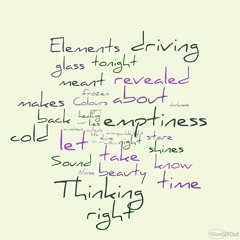 Elements driving
glass tonight
meant revealed
frozen
makes Colours about
darkness
back healing emptiness
lies
cold let night stare
take shines
Sound know
Noise beauty time
Thinking
right
WordItOut